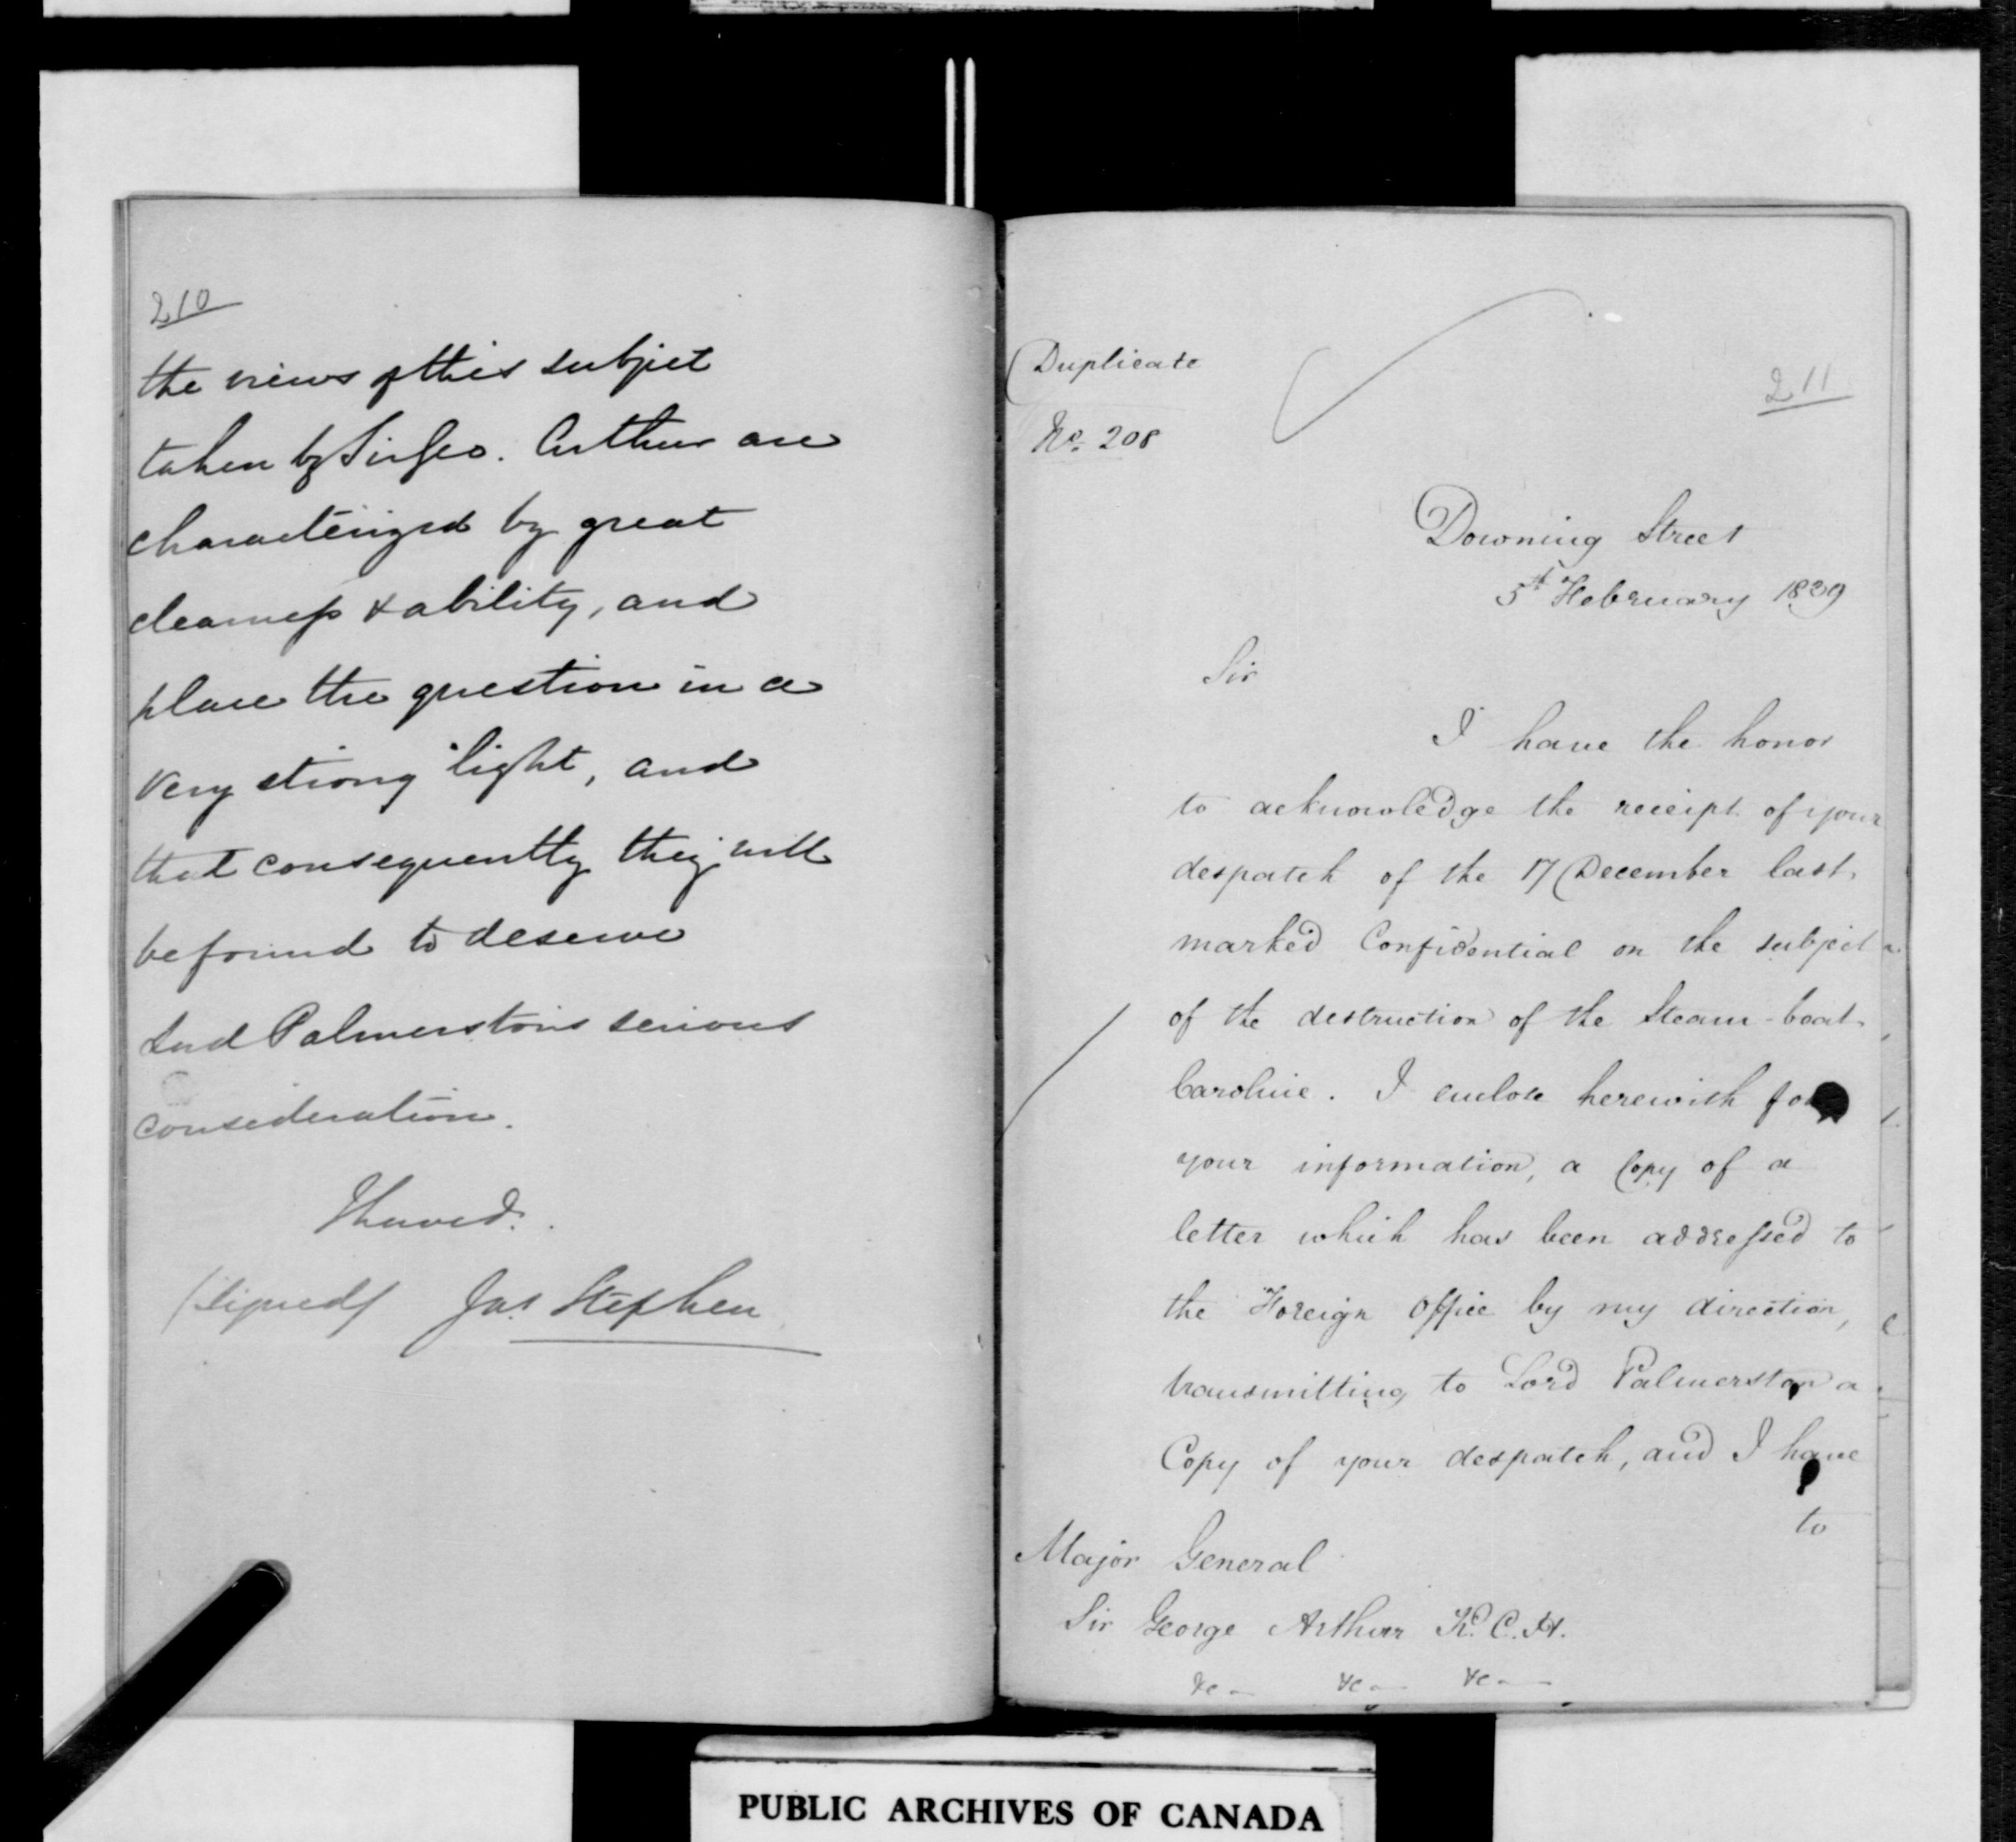 210
the views of this subject
taken by Sir Geo. Arthur are
characterized by great
clearness & ability, and
place the question in a
very strong light, and
that consequently they will
be found to deserve
Lord Palmerston's serious
consideration.
I have &c.
(signed) Jas. Stephen
Duplicate
No. 208
211
Downing Street
5th February 1839
Sir
I have the honor
to acknowledge the receipt of your
despatch of the 17 December last,
marked Confidential on the subject
of the destruction of the Steam-boat
Caroline. I enclose herewith for
your information, a Copy of a
letter which has been addressed to
the Foreign Office by my direction,
transmitting to Lord Palmerston a
Copy of your despatch, and I have
to
Major General
Sir George Arthur K.C.H.
&c &c &c
PUBLIC ARCHIVES OF CANADA